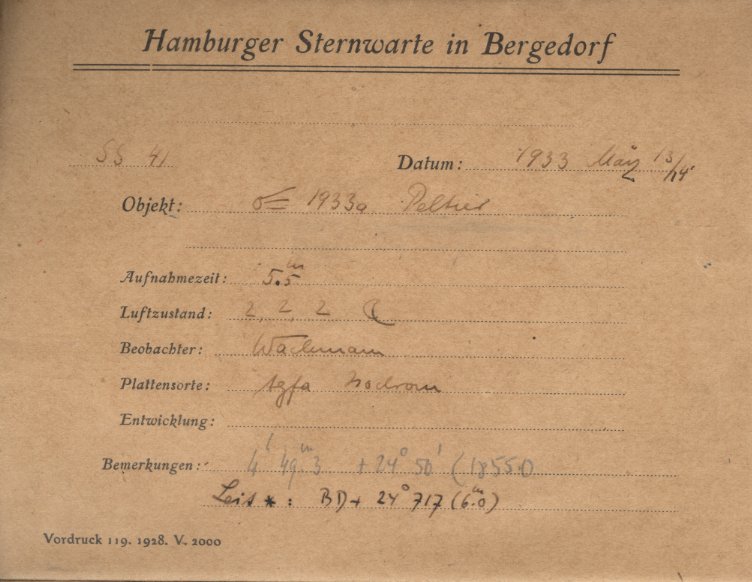 Hamburger Sternwarte in Bergedorf
SS 41
Datum: 1933 März 13/14
Objekt: ☄ 1933a Peltier
Aufnahmezeit: 5.5m
Luftzustand: 2, 2, 2 ☾
Beobachter: Wachmann
Plattensorte: Agfa Isochrom
Entwicklung:
Bemerkungen: 4h 49m.3 +24° 50' (1855.0
Leit *: BD + 24° 717 (6.m0)
Vordruck 119. 1928. V. 2000